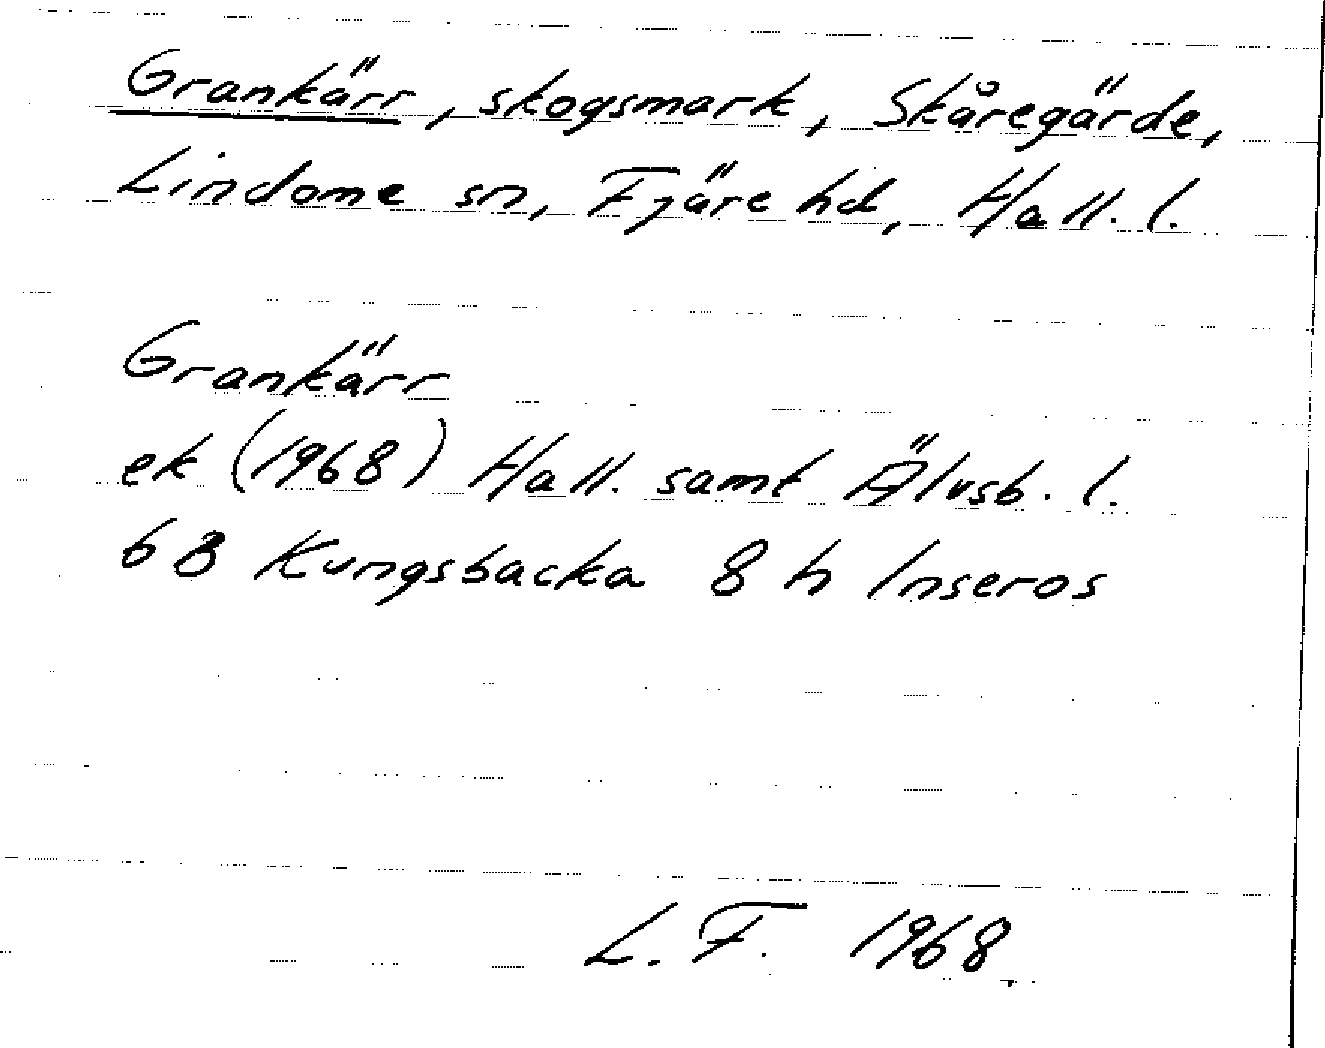 Grankärr, skogsmark, Skåregärde,
Lindome sn, Fjäre hd, Hall. l.
Grankärr
ek (1968) Hall. samt Älvsb. l.
6 B Kungsbacka 8 h Inseros
L. F. 1968